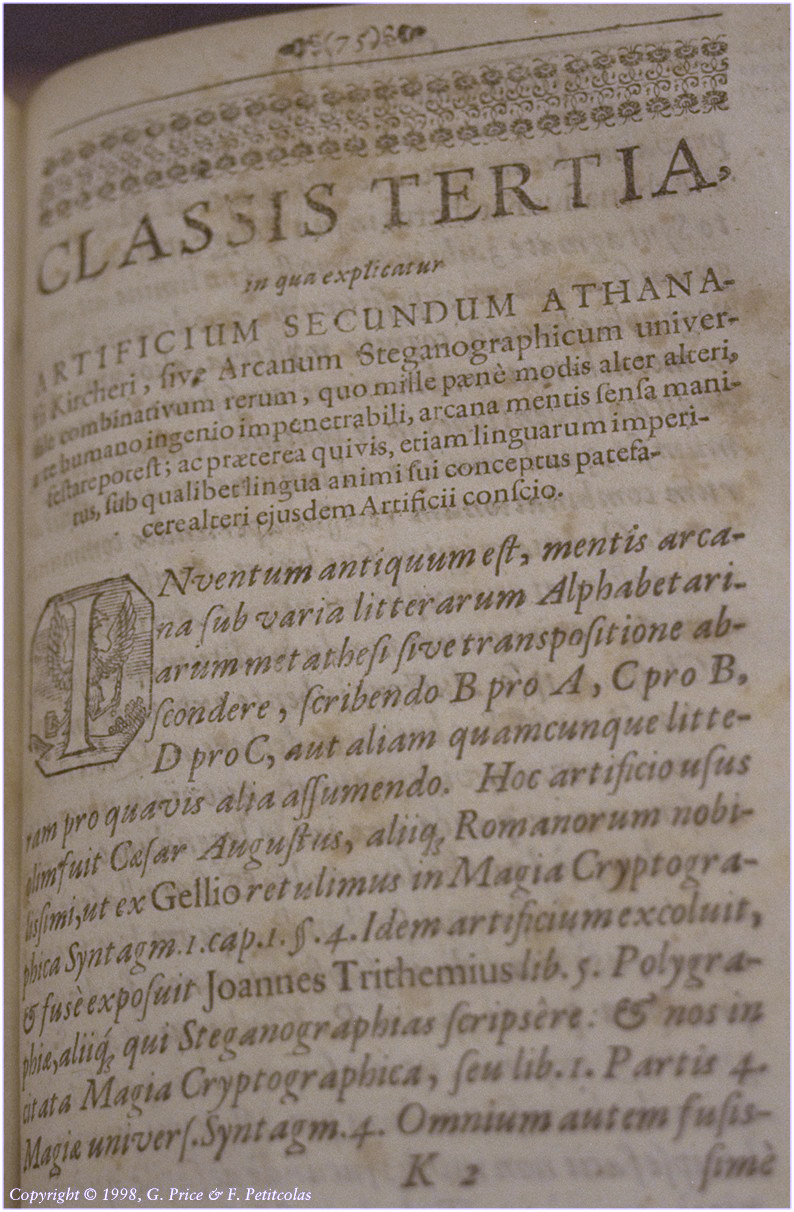 (75)
CLASSIS TERTIA,
in qua explicatur
ARTIFICIUM SECUNDUM ATHANA-
sii Kircheri, ſive Arcanum Steganographicum univer-
sale combinativum rerum, quo mille pænè modis alter alteri,
arte humano ingenio impenetrabili, arcana mentis ſenſa mani-
feſtare poteſt; ac præterea quivis, etiam linguarum imperi-
tus, ſub qualibet lingua animi ſui conceptus patefa-
cere alteri ejusdem Artificii conſcio.
INventum antiquum eſt, mentis arca-
na ſub varia litterarum Alphabetari-
arum metatheſi ſive transpoſitione ab-
ſcondere, ſcribendo B pro A, C pro B,
D pro C, aut aliam quamcunque litte-
ram pro quavis alia aſſumendo. Hoc artificio uſus
olim fuit Cæſar Auguſtus, aliiq; Romanorum nobi-
liſſimi, ut ex Gellio retulimus in Magia Cryptogra-
phica Syntagm. 1. cap. 1. §. 4. Idem artificium excoluit,
& fusè expoſuit Joannes Trithemius lib. 5. Polygra-
phiæ, aliiq́; qui Steganographias ſcripsère: & nos in
citata Magia Cryptographica, ſeu lib. 1. Partis 4.
Magiæ univerſ. Syntagm. 4. Omnium autem fuſis-
K 2 ſimè
Copyright © 1998, G. Price & F. Petitcolas